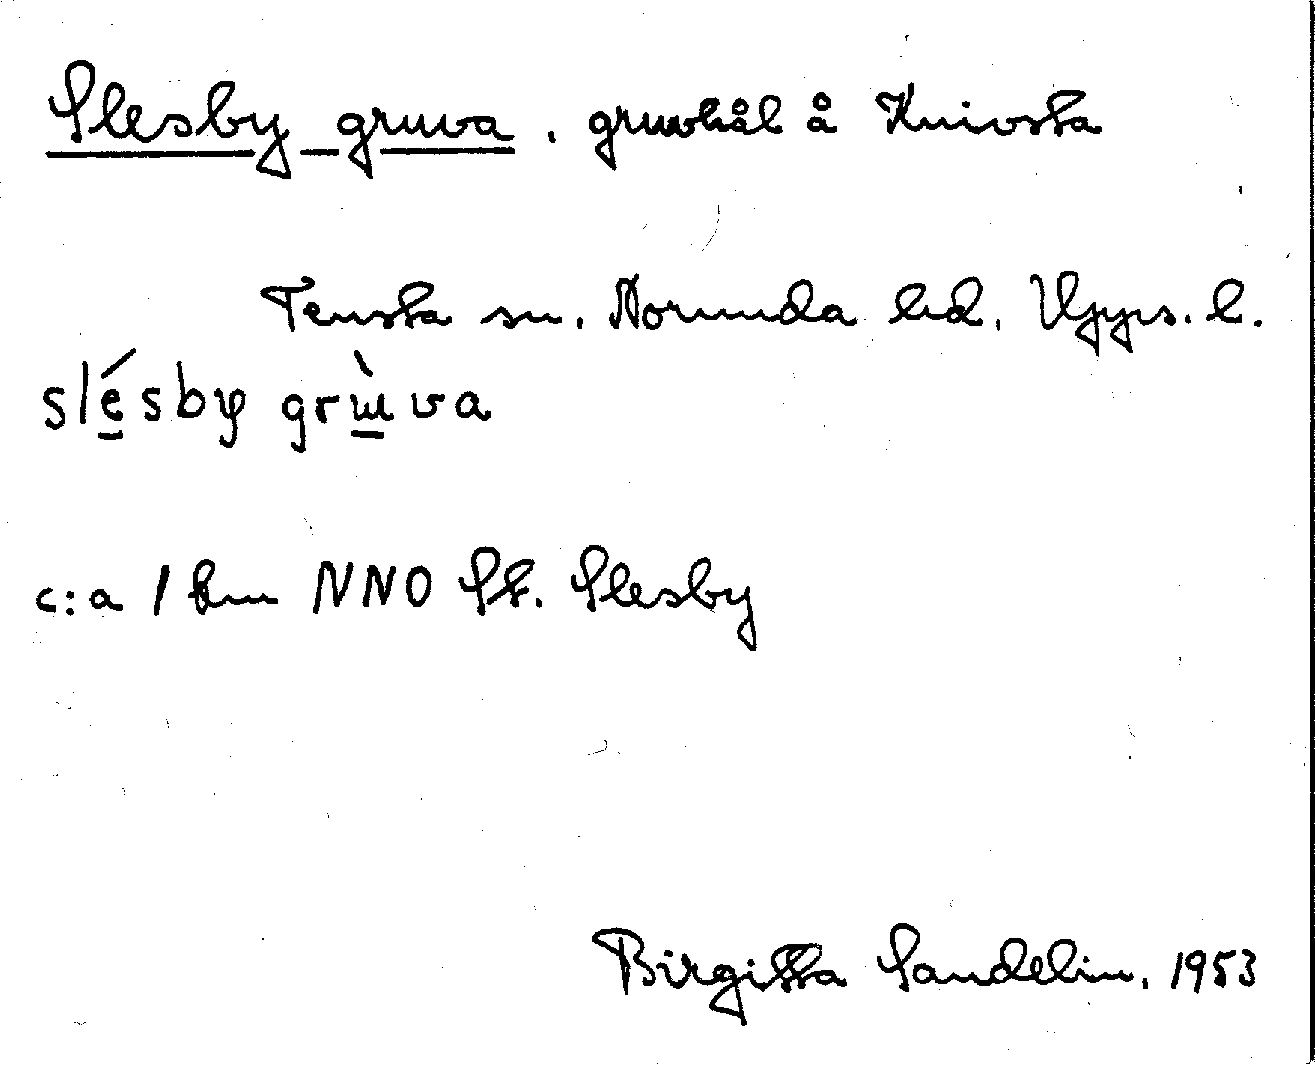 Slesby gruva, gruvhål å Knivsta
Tensta sn. Norunda hd. Upps. l.
slé̱sby grɯ̱̀va
c:a 1 km NNO St. Slesby
Birgitta Sandelin, 1953